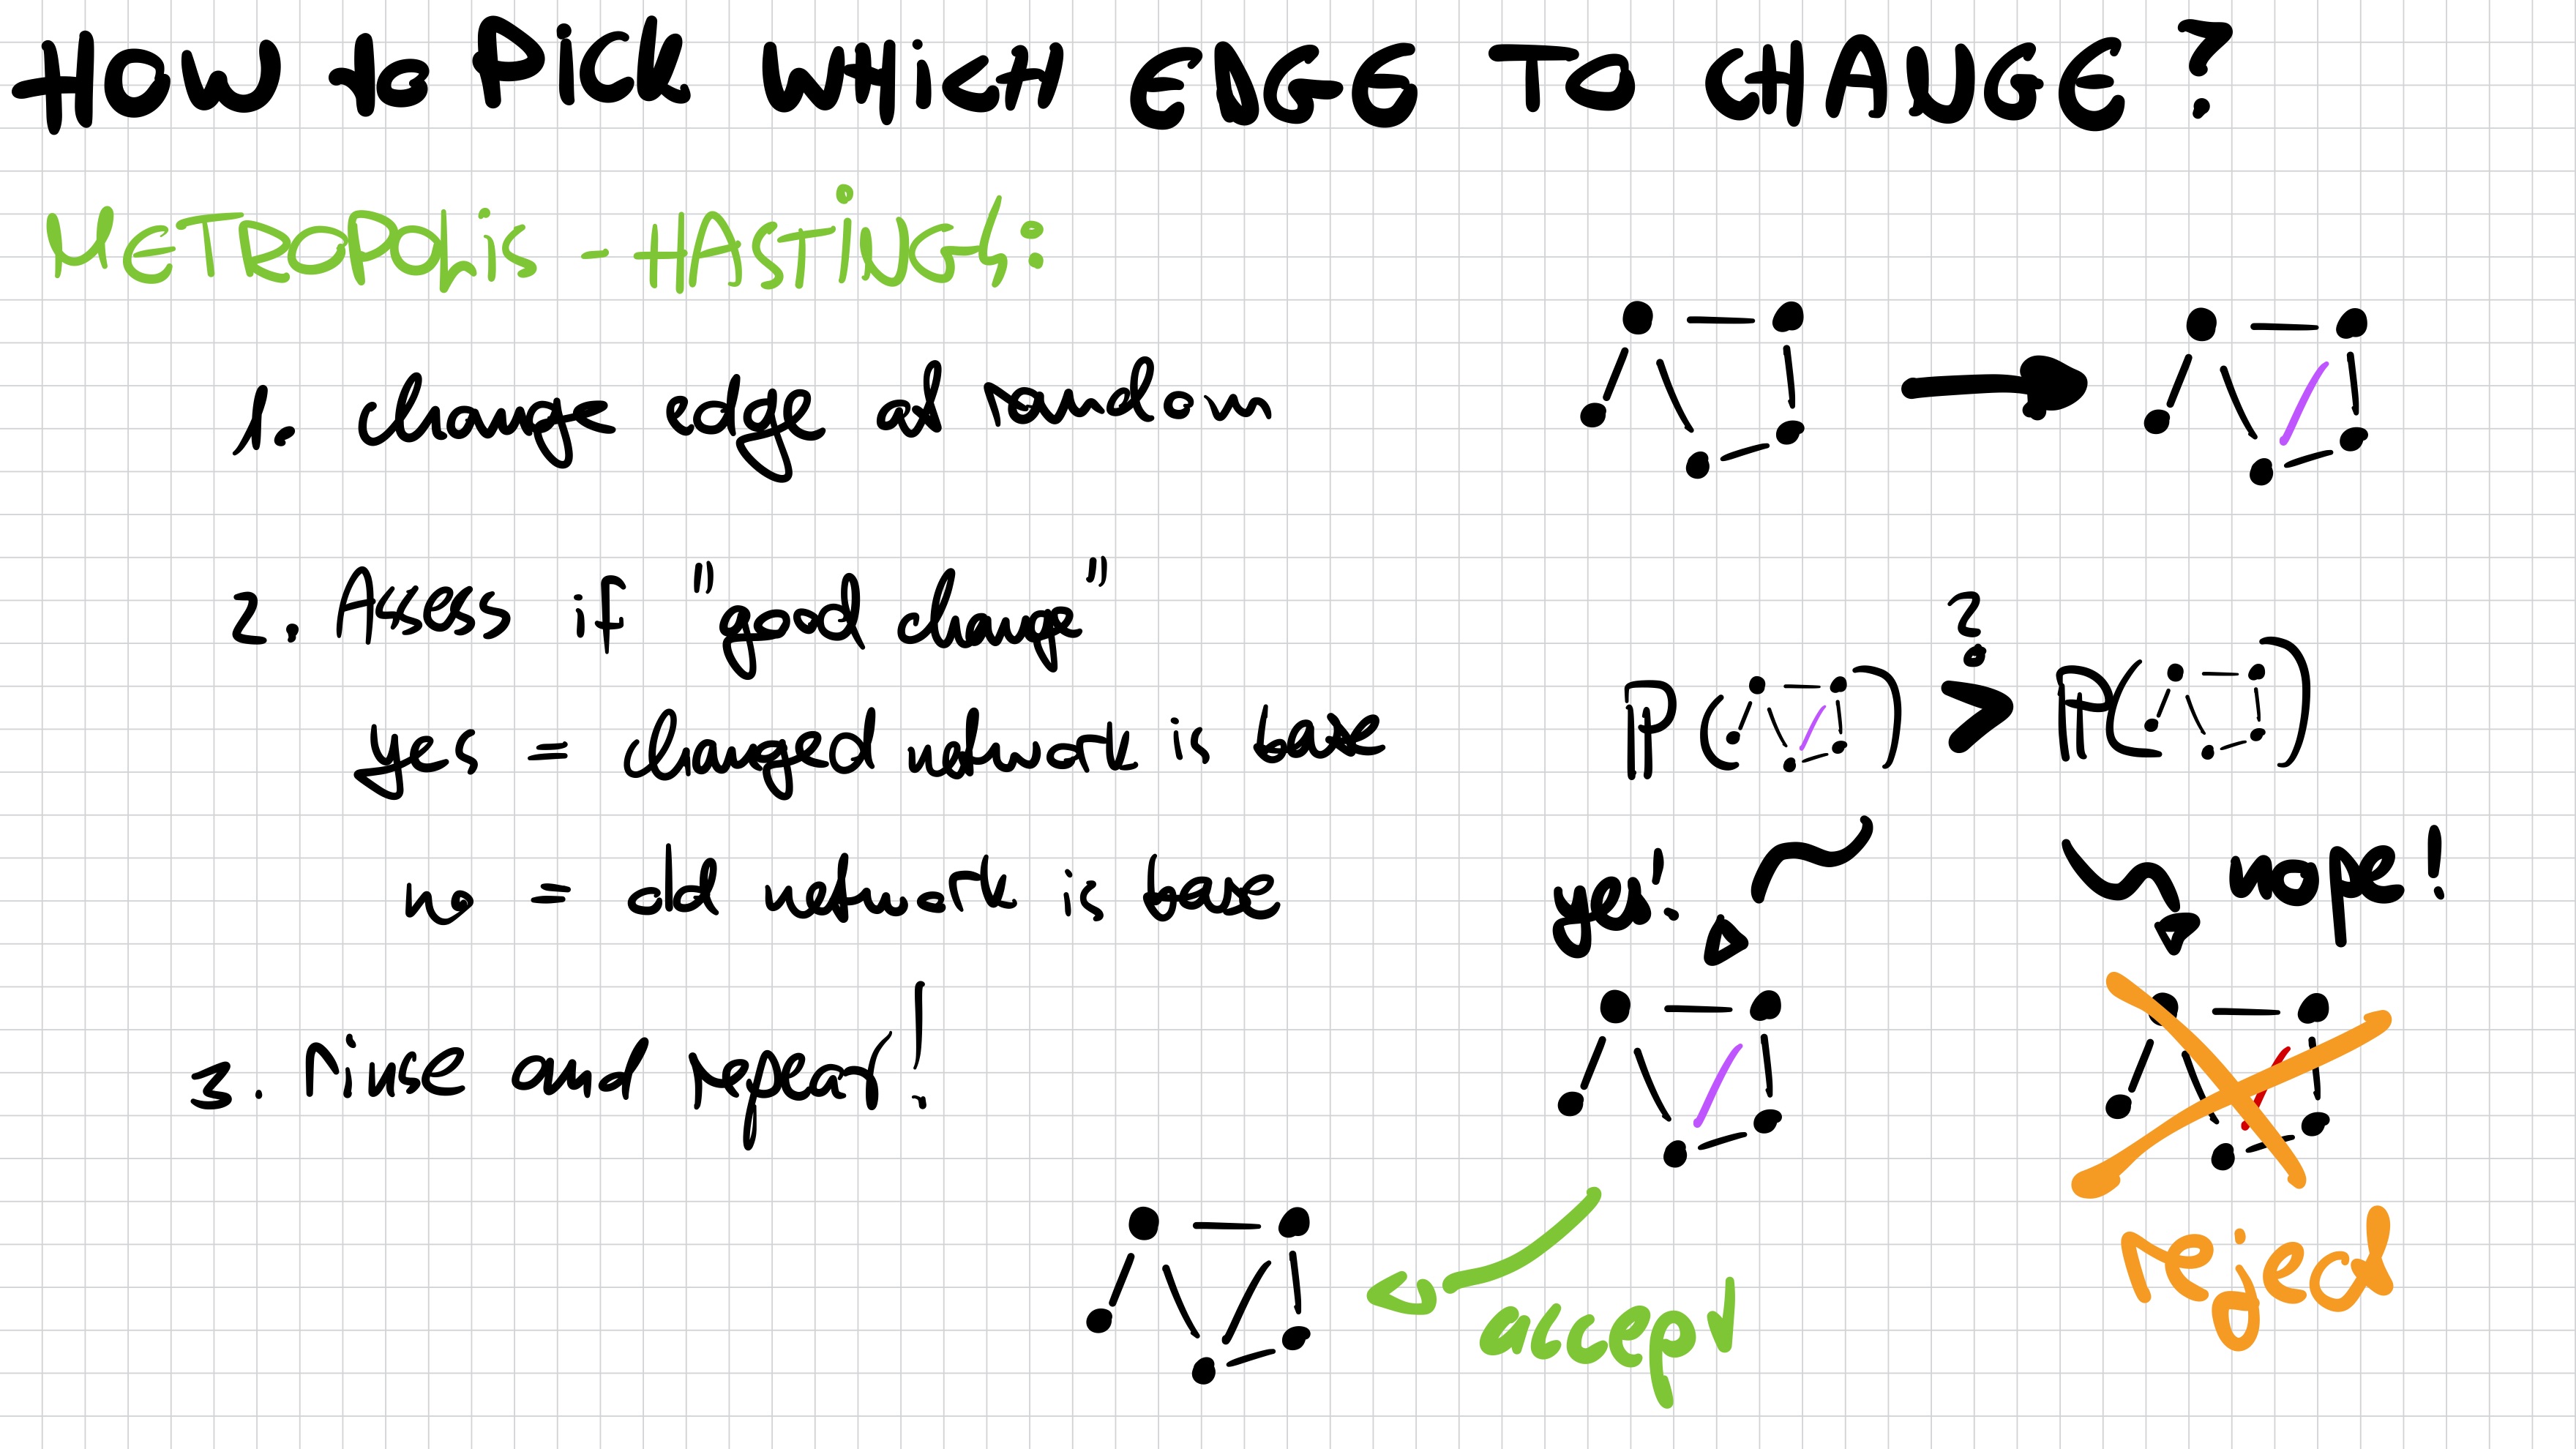 HOW to PiCK WHiCH EDGE TO CHANGE?
METROPOLiS - HASTiNGS:
1. change edge at random
2. Assess if "good change"
?
P( ) > P( )
yes = changed network is base
yes!
nope!
no = old network is base
3. rinse and repeat!
reject
accept